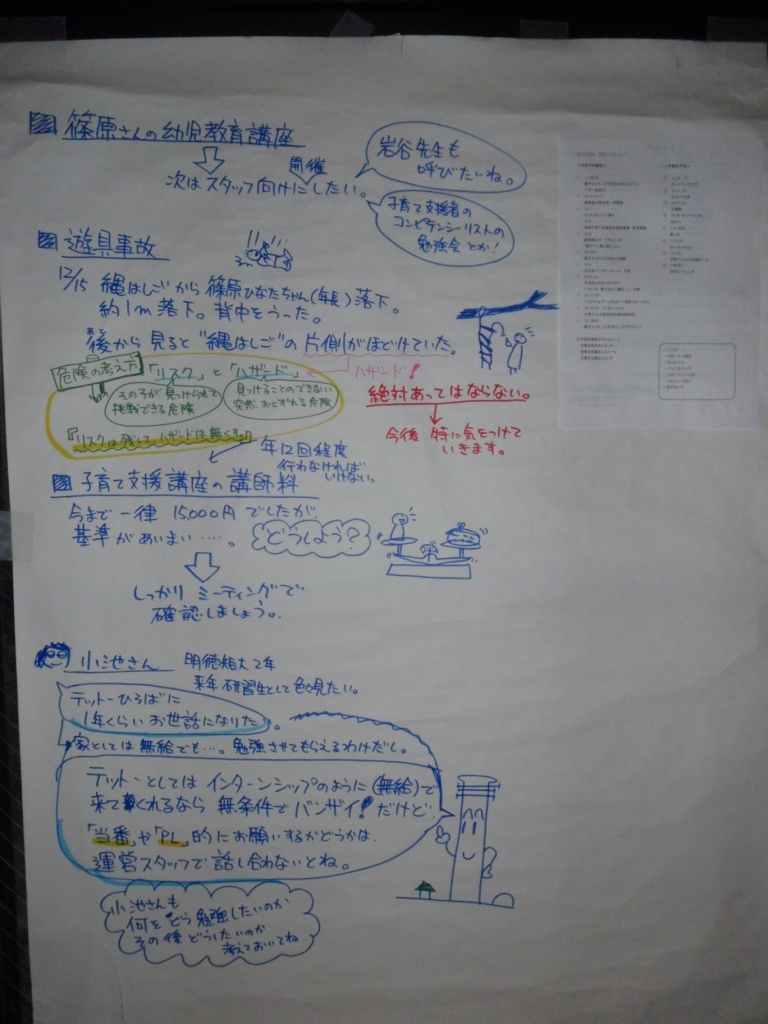 篠原さんの幼児教育講座
開催
次はスタッフ向けにしたい。
岩谷先生も
呼びたいね。
子育て支援者の
コンピテンシーリストの
勉強会とか!
遊具事故
12/15 縄はしごから篠原ひなたちゃん(年長)落下。
約1m落下。背中をうった。
あと
後から見ると"縄はしご"の片側がほどけていた。
危険の考え方
「リスク」と「ハザード」
ハザード!
その子が見つけられて
挑戦できる危険
見つけることのできない
突然おとずれる危険
「リスクは残してハザードは無くす。」
絶対あってはならない。
今後特に気をつけて
いきます。
年12回程度
行わなければ
いけない。
子育て支援講座の講師料
今まで一律15,000円でしたが
基準があいまい……。
どうしよう?
しっかりミーティングで
確認しましょう。
小池さん
明徳短大2年
来年研修生として色々見たい。
テットーひろばに
1年くらいお世話になりたい。
家としては無給でも…。勉強させてもらえるわけだし。
テットーとしてはインターンシップのように(無給)で
来てくれるなら無条件でバンザイ!だけど
「当番」や「PL」的にお願いするかどうかは
運営スタッフで話し合わないとね。
小池さんも
何をどう勉強したいのか
その後どうしたいのか
考えておいてね